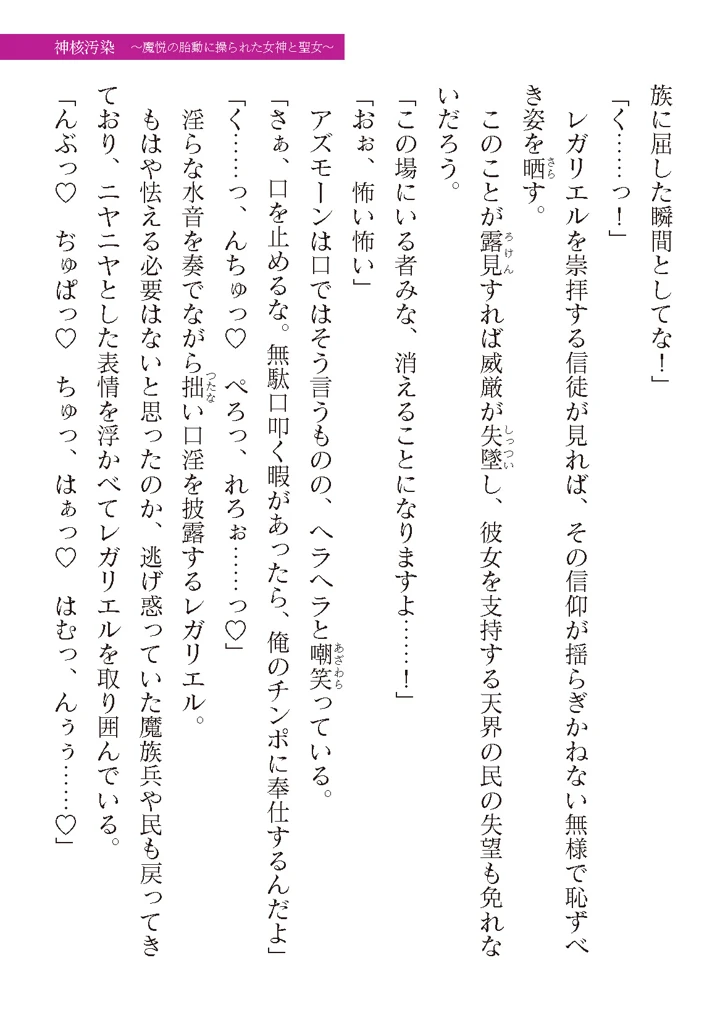 神核汚染　～魔悦の胎動に操られた女神と聖女～
族に屈した瞬間としてな！」
「く……っ！」
　レガリエルを崇拝する信徒が見れば、その信仰が揺らぎかねない無様で恥ずべ
き姿を晒す。
　このことが露見すれば威厳が失墜し、彼女を支持する天界の民の失望も免れな
いだろう。
「この場にいる者みな、消えることになりますよ……！」
「おぉ、怖い怖い」
　アズモーンは口ではそう言うものの、ヘラヘラと嘲笑っている。
「さぁ、口を止めるな。無駄口叩く暇があったら、俺のチンポに奉仕するんだよ」
「く……っ、んちゅっ♡　ぺろっ、れろぉ……っ♡」
　淫らな水音を奏でながら拙い口淫を披露するレガリエル。
　もはや怯える必要はないと思ったのか、逃げ惑っていた魔族兵や民も戻ってき
ており、ニヤニヤとした表情を浮かべてレガリエルを取り囲んでいる。
「んぶっ♡　ぢゅぱっ♡　ちゅっ、はぁっ♡　はむっ、んぅぅ……♡」